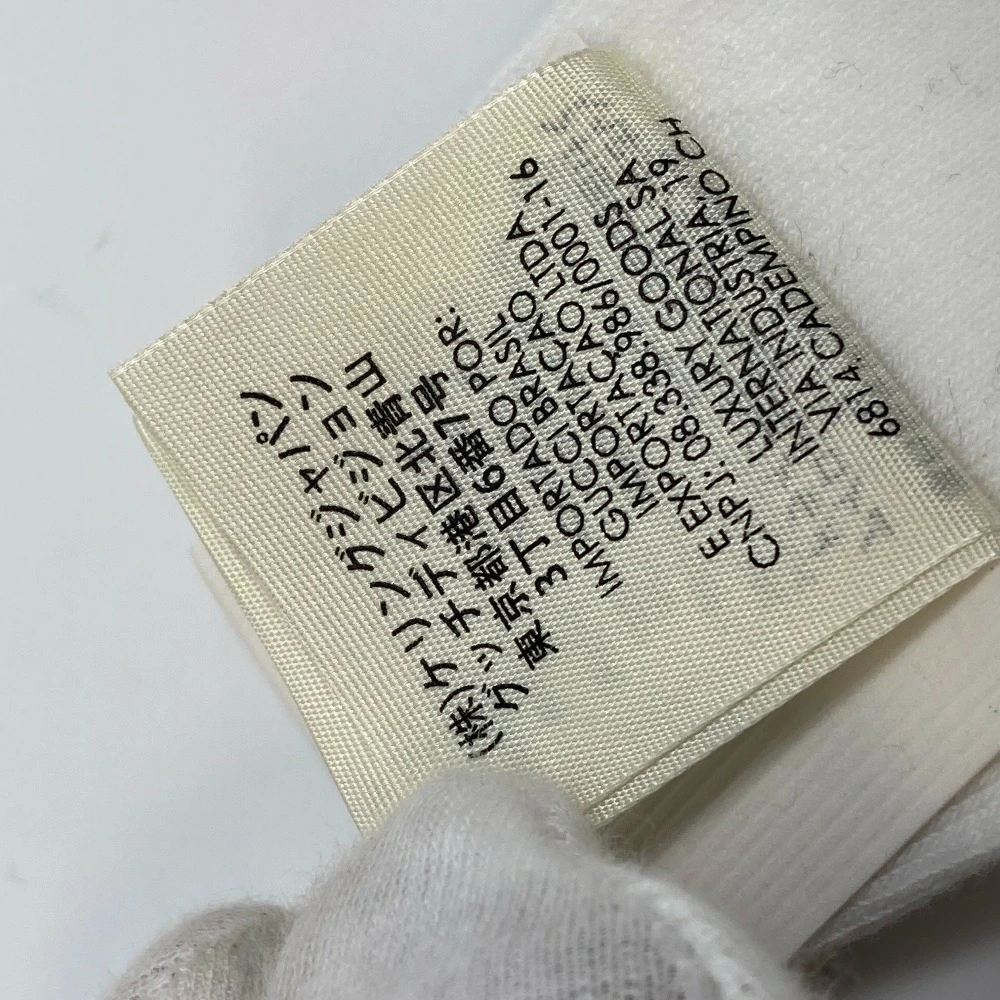 (株)ケリングジャパン
グッチ ディビジョン
東京都港区北青山
3丁目6番7号
IMPORTADO POR:
GUCCI BRASIL
IMPORTAÇAO LTDA
E EXPORTAÇAO
CNPJ: 08.338.986/0001-16
LUXURY GOODS
INTERNATIONAL SA
VIA INDUSTRIA, 19
6814, CADEMPINO CH